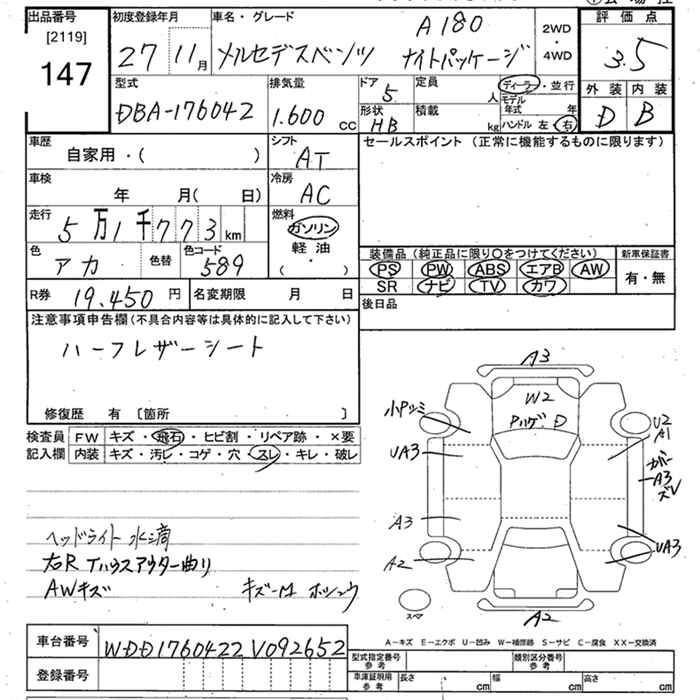 出品番号 初度登録年月 車名・グレード 評価点
[2119]
147
27 11月 メルセデスベンツ A180 ナイトパッケージ
2WD ・ 4WD
3.5
型式 排気量 ドア 定員 ディーラー・並行 外装 内装
DBA-176042 1.600 cc 5 人 モデル年式 年 D B
形状 積載
HB kg ハンドル 左・右
車歴 シフト セールスポイント (正常に機能するものに限ります)
自家用・( ) AT
車検 冷房
年 月( 日) AC
走行 燃料
5万1千773km ガソリン
軽油
( ・ )
色 色替 色コード
アカ 589
装備品 (純正品に限り○をつけてください) 新車保証書
PS PW ABS エアB AW 有・無
SR ナビ TV カワ
R券 19.450円 名変期限 月 日
後日品
注意事項申告欄 (不具合内容等は具体的に記入して下さい)
ハーフレザーシート
修復歴 有 〔箇所 〕
検査員 FW キズ・飛石・ヒビ割・リペア跡・×要
記入欄 内装 キズ・汚レ・コゲ・穴・スレ・キレ・破レ
ヘッドライト 水滴
右R Tハウスアウター曲り
AWキズ キズーM ホシュウ
A3
W2
PハゲD
小Pツミ
U2
A1
UA3
A3
A3
A2
UA3
A2
スペア
A-キズ E-エクボ U-凹み W-補修跡 S-サビ C-腐食 XX-交換済
車台番号 WDD1760422V092652
登録番号
型式指定番号 参考 類別区分番号 参考
車庫証明用 参考 長さ cm 幅 cm 高さ cm